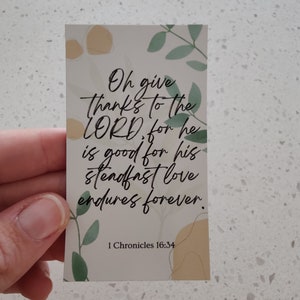 Oh give
thanks to the
LORD, for he
is good for his
steadfast love
endures forever.
1 Chronicles 16:34